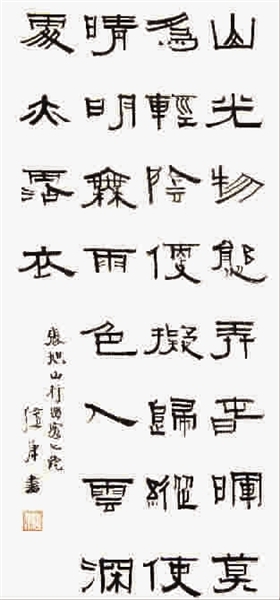 山光物態弄春暉莫
為輕陰便擬歸縱使
晴明無雨色入雲深
處亦霑衣
張旭山行留客之
書